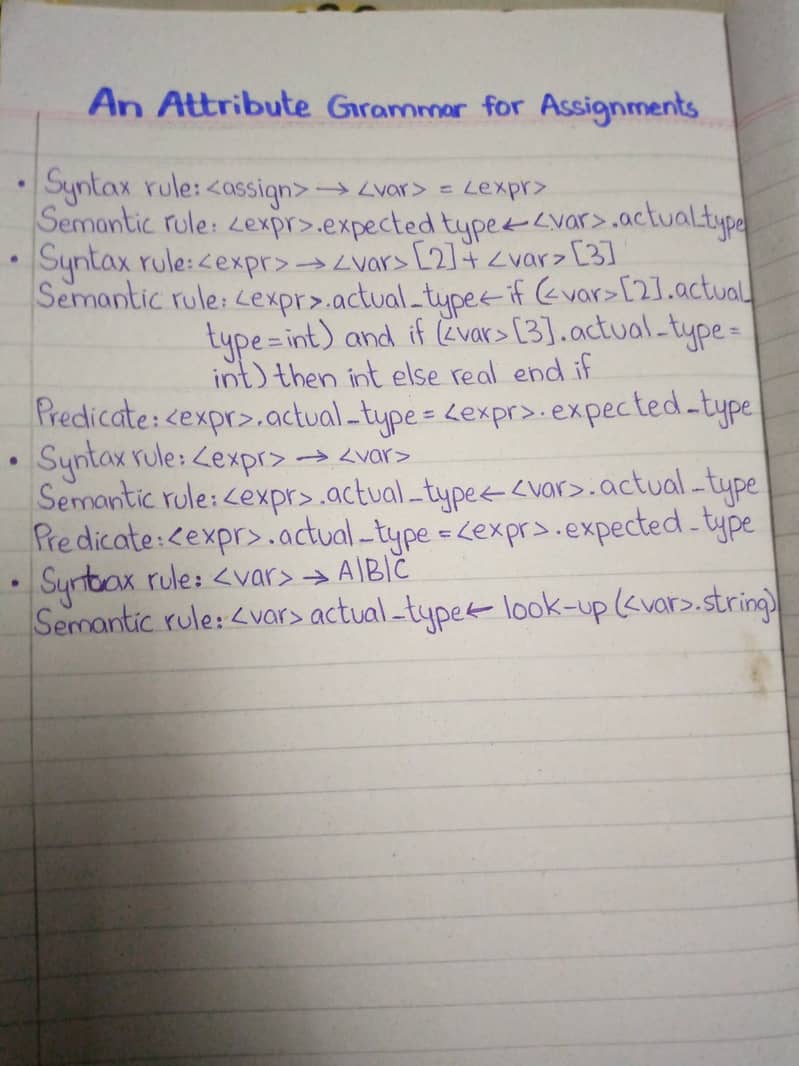 An Attribute Grammar for Assignments
• Syntax rule: <assign> → <var> = <expr>
Semantic rule: <expr>.expected type ← <var>.actual_type
• Syntax rule: <expr> → <var> [2] + <var> [3]
Semantic rule: <expr>.actual_type ← if (<var>[2].actual_
type = int) and if (<var>[3].actual_type =
int) then int else real end if
Predicate: <expr>.actual_type = <expr>.expected_type
• Syntax rule: <expr> → <var>
Semantic rule: <expr>.actual_type ← <var>.actual_type
Predicate: <expr>.actual_type = <expr>.expected_type
• Syntax rule: <var> → A|B|C
Semantic rule: <var> actual_type ← look-up (<var>.string)